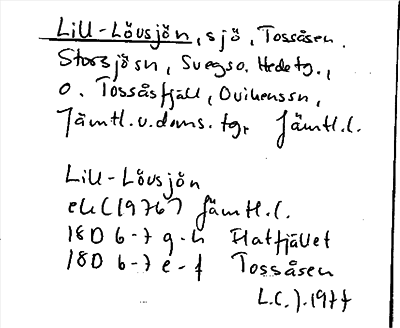 Lill-Lövsjön, sjö, Tossåsen.
Storsjösn, Svegso. Hedetg.,
o. Tossåsfjäll, Ovikenssn,
Jämtl.v.doms.tg, Jämtl.l.
Lill-Lövsjön
ek (1976) Jämtl.l.
18D 6-7 g-h Flatfjället
18D 6-7 e-f Tossåsen
L.C.J. 1977